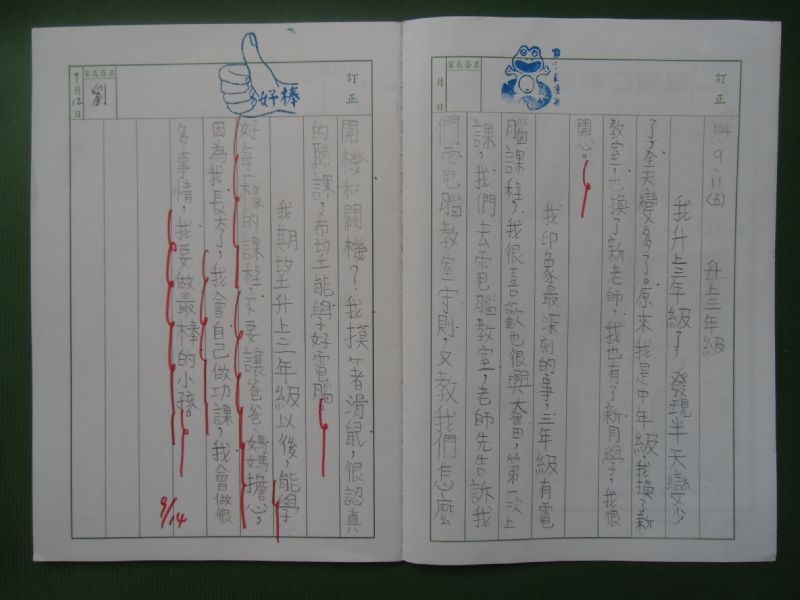 訂正
家長簽名
月 日
104.9.11(五)
升上三年級
我升上三年級了，發現半天變少
了，全天變多了。原來我是中年級，我換了新
教室，也換了新老師，我也有了新同學，我很
開心。
我印象最深刻的事，三年級有電
腦課程，我很喜歡也很興奮，第一次上
課，我們去電腦教室，老師先告訴我
們電腦教室守則，又教我們怎麼
訂正
好棒
家長簽名
劉
9月12日
開機和關機？我摸著滑鼠，很認真
的聽課，希望能學好電腦。
我期望升上三年級以後，能學
好每一樣的課程不要讓爸爸媽媽擔心，
因為我長大了，我會自己做功課，我會做很
多事情，我要做最棒的小孩。
9/14